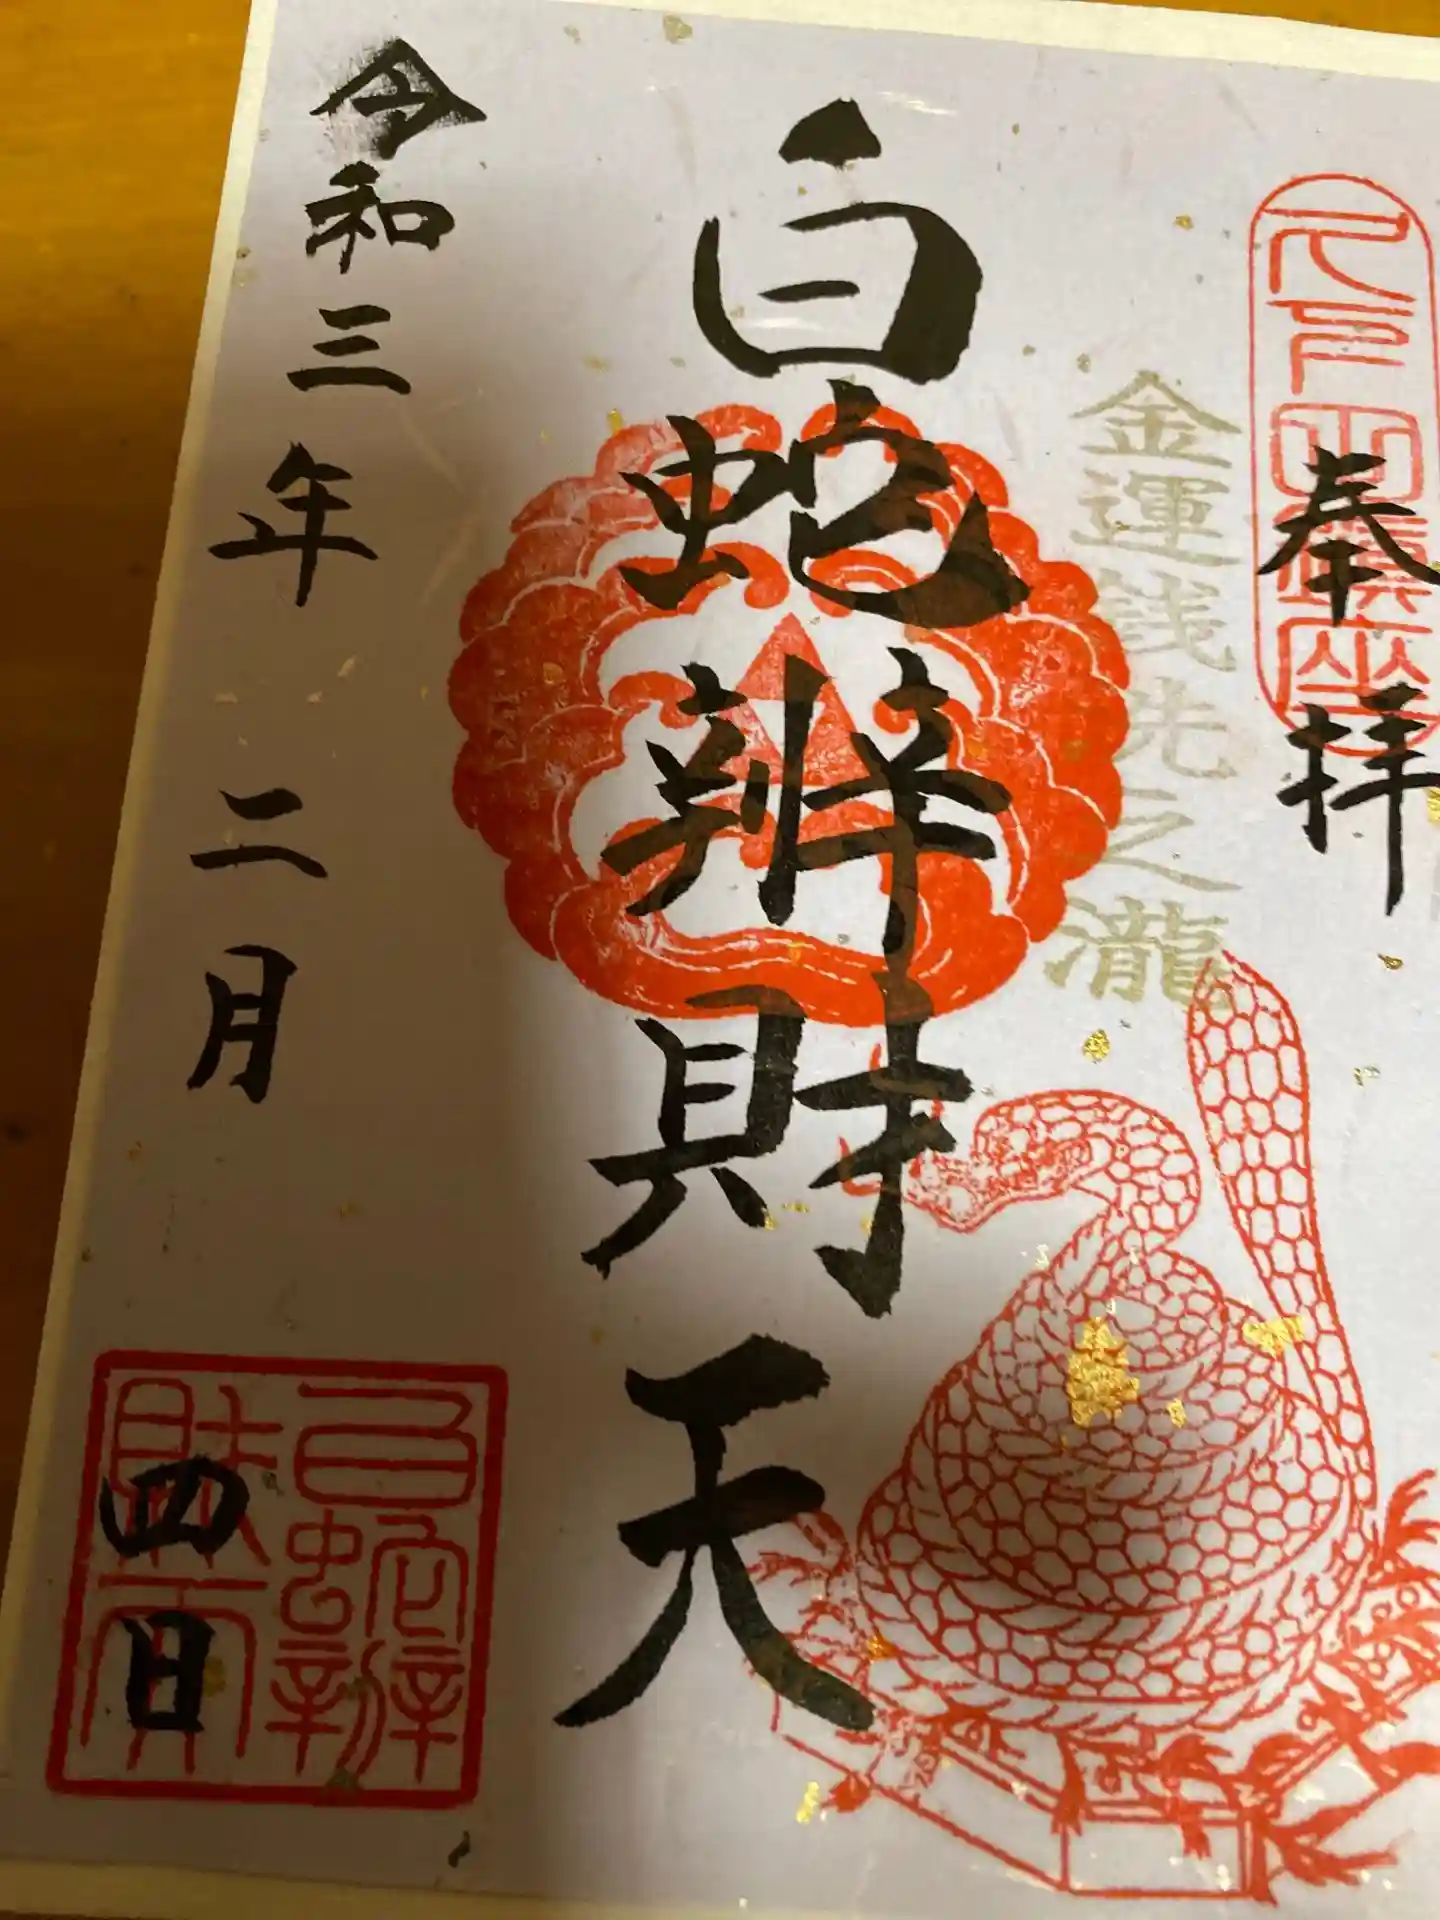 奉拝
鎮座
金運銭洗之瀧
白蛇辨財天
令和三年二月四日
白蛇辨
財天